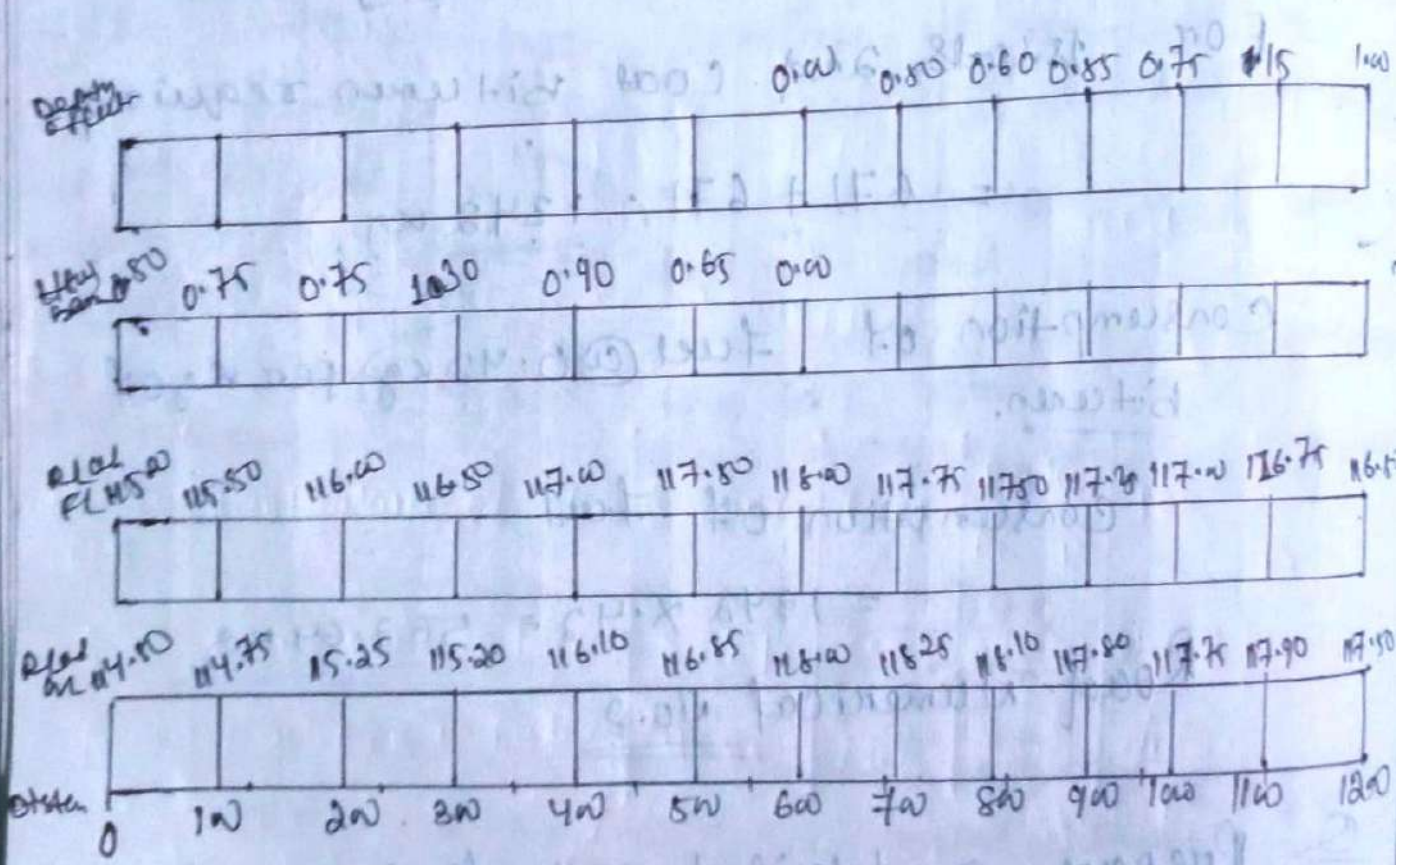 0.00 0.50 0.60 0.55 0.75 1.15 1.00
0.50 0.75 0.75 1.30 0.90 0.65 0.00
R.L of
FL 115.00 115.50 116.00 116.50 117.00 117.50 118.00 117.75 117.50 117.25 117.00 116.75
R.L of
GL 114.50 114.75 115.25 115.20 116.10 116.85 118.00 118.25 118.10 117.80 117.75 117.90 117.50
0 100 200 300 400 500 600 700 800 900 1000 1100 1200